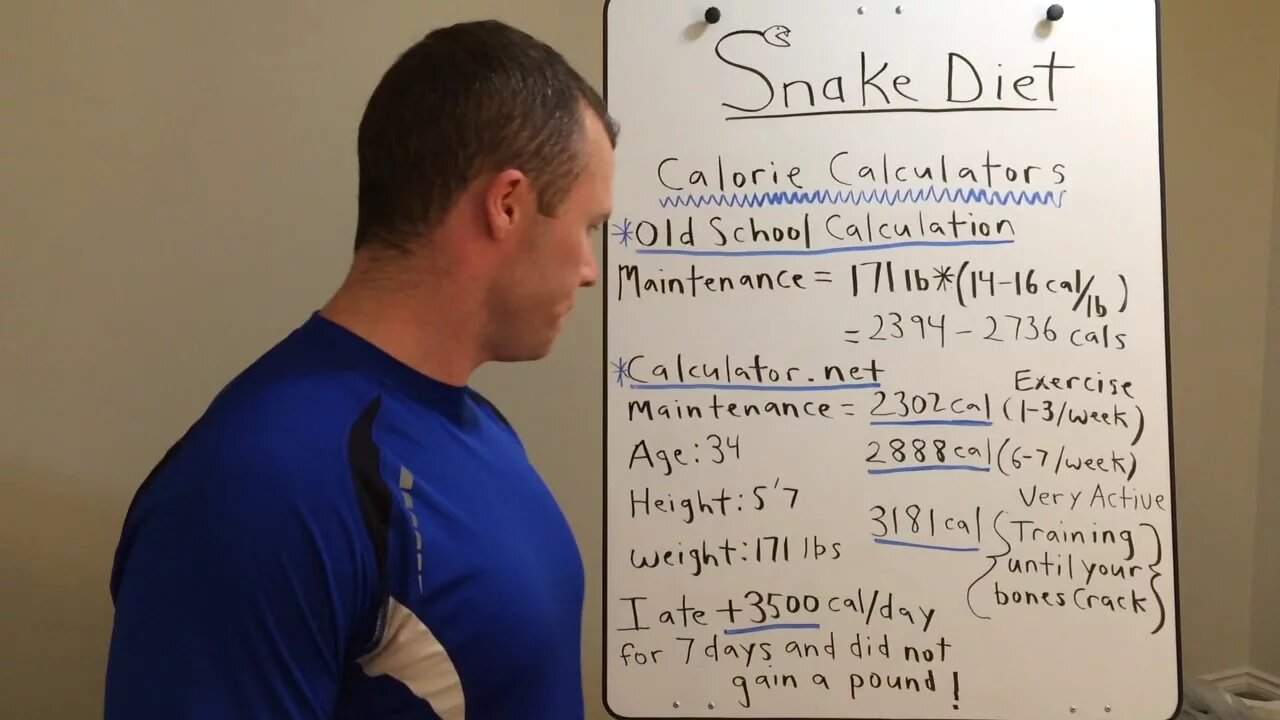 Snake Diet
Calorie Calculators
*Old School Calculation
Maintenance = 171 lb*(14-16 cal/lb)
= 2394 - 2736 cals
*Calculator.net
Exercise
Maintenance = 2302 cal (1-3/week)
Age: 34
2888 cal (6-7/week)
Height: 5'7
Very Active
3181 cal {Training}
weight: 171 lbs
{until your
bones Crack}
I ate +3500 cal/day
for 7 days and did not
gain a pound!